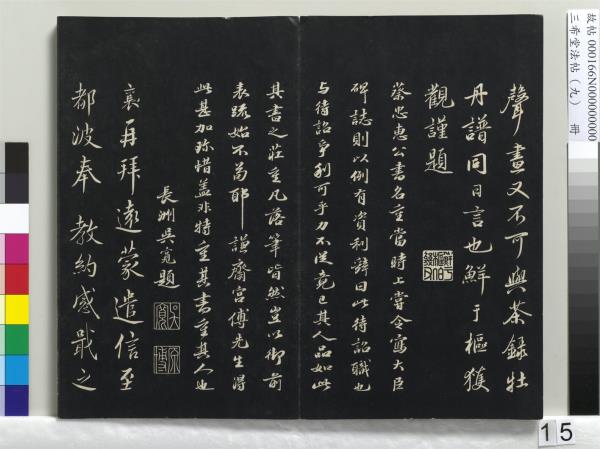 聲畫又不可與茶錄牡
丹譜同日言也鮮于樞獲
觀謹題
蔡忠惠公書名重當時上嘗令寫大臣
碑誌則以例有資利辭曰此待詔職也
与待詔爭利可乎力不從竟已其人品如此
其書之莊重凡落筆皆然豈以御前
表疏始不苟耶謙齋宮傅先生得
此甚加珍惜蓋非特重其書重其人也
長洲吳寬題
吳寬
原博
襄再拜遠蒙遣信至
都波奉教約感戢之
故帖 000166N000000000
三希堂法帖(九) 冊
15